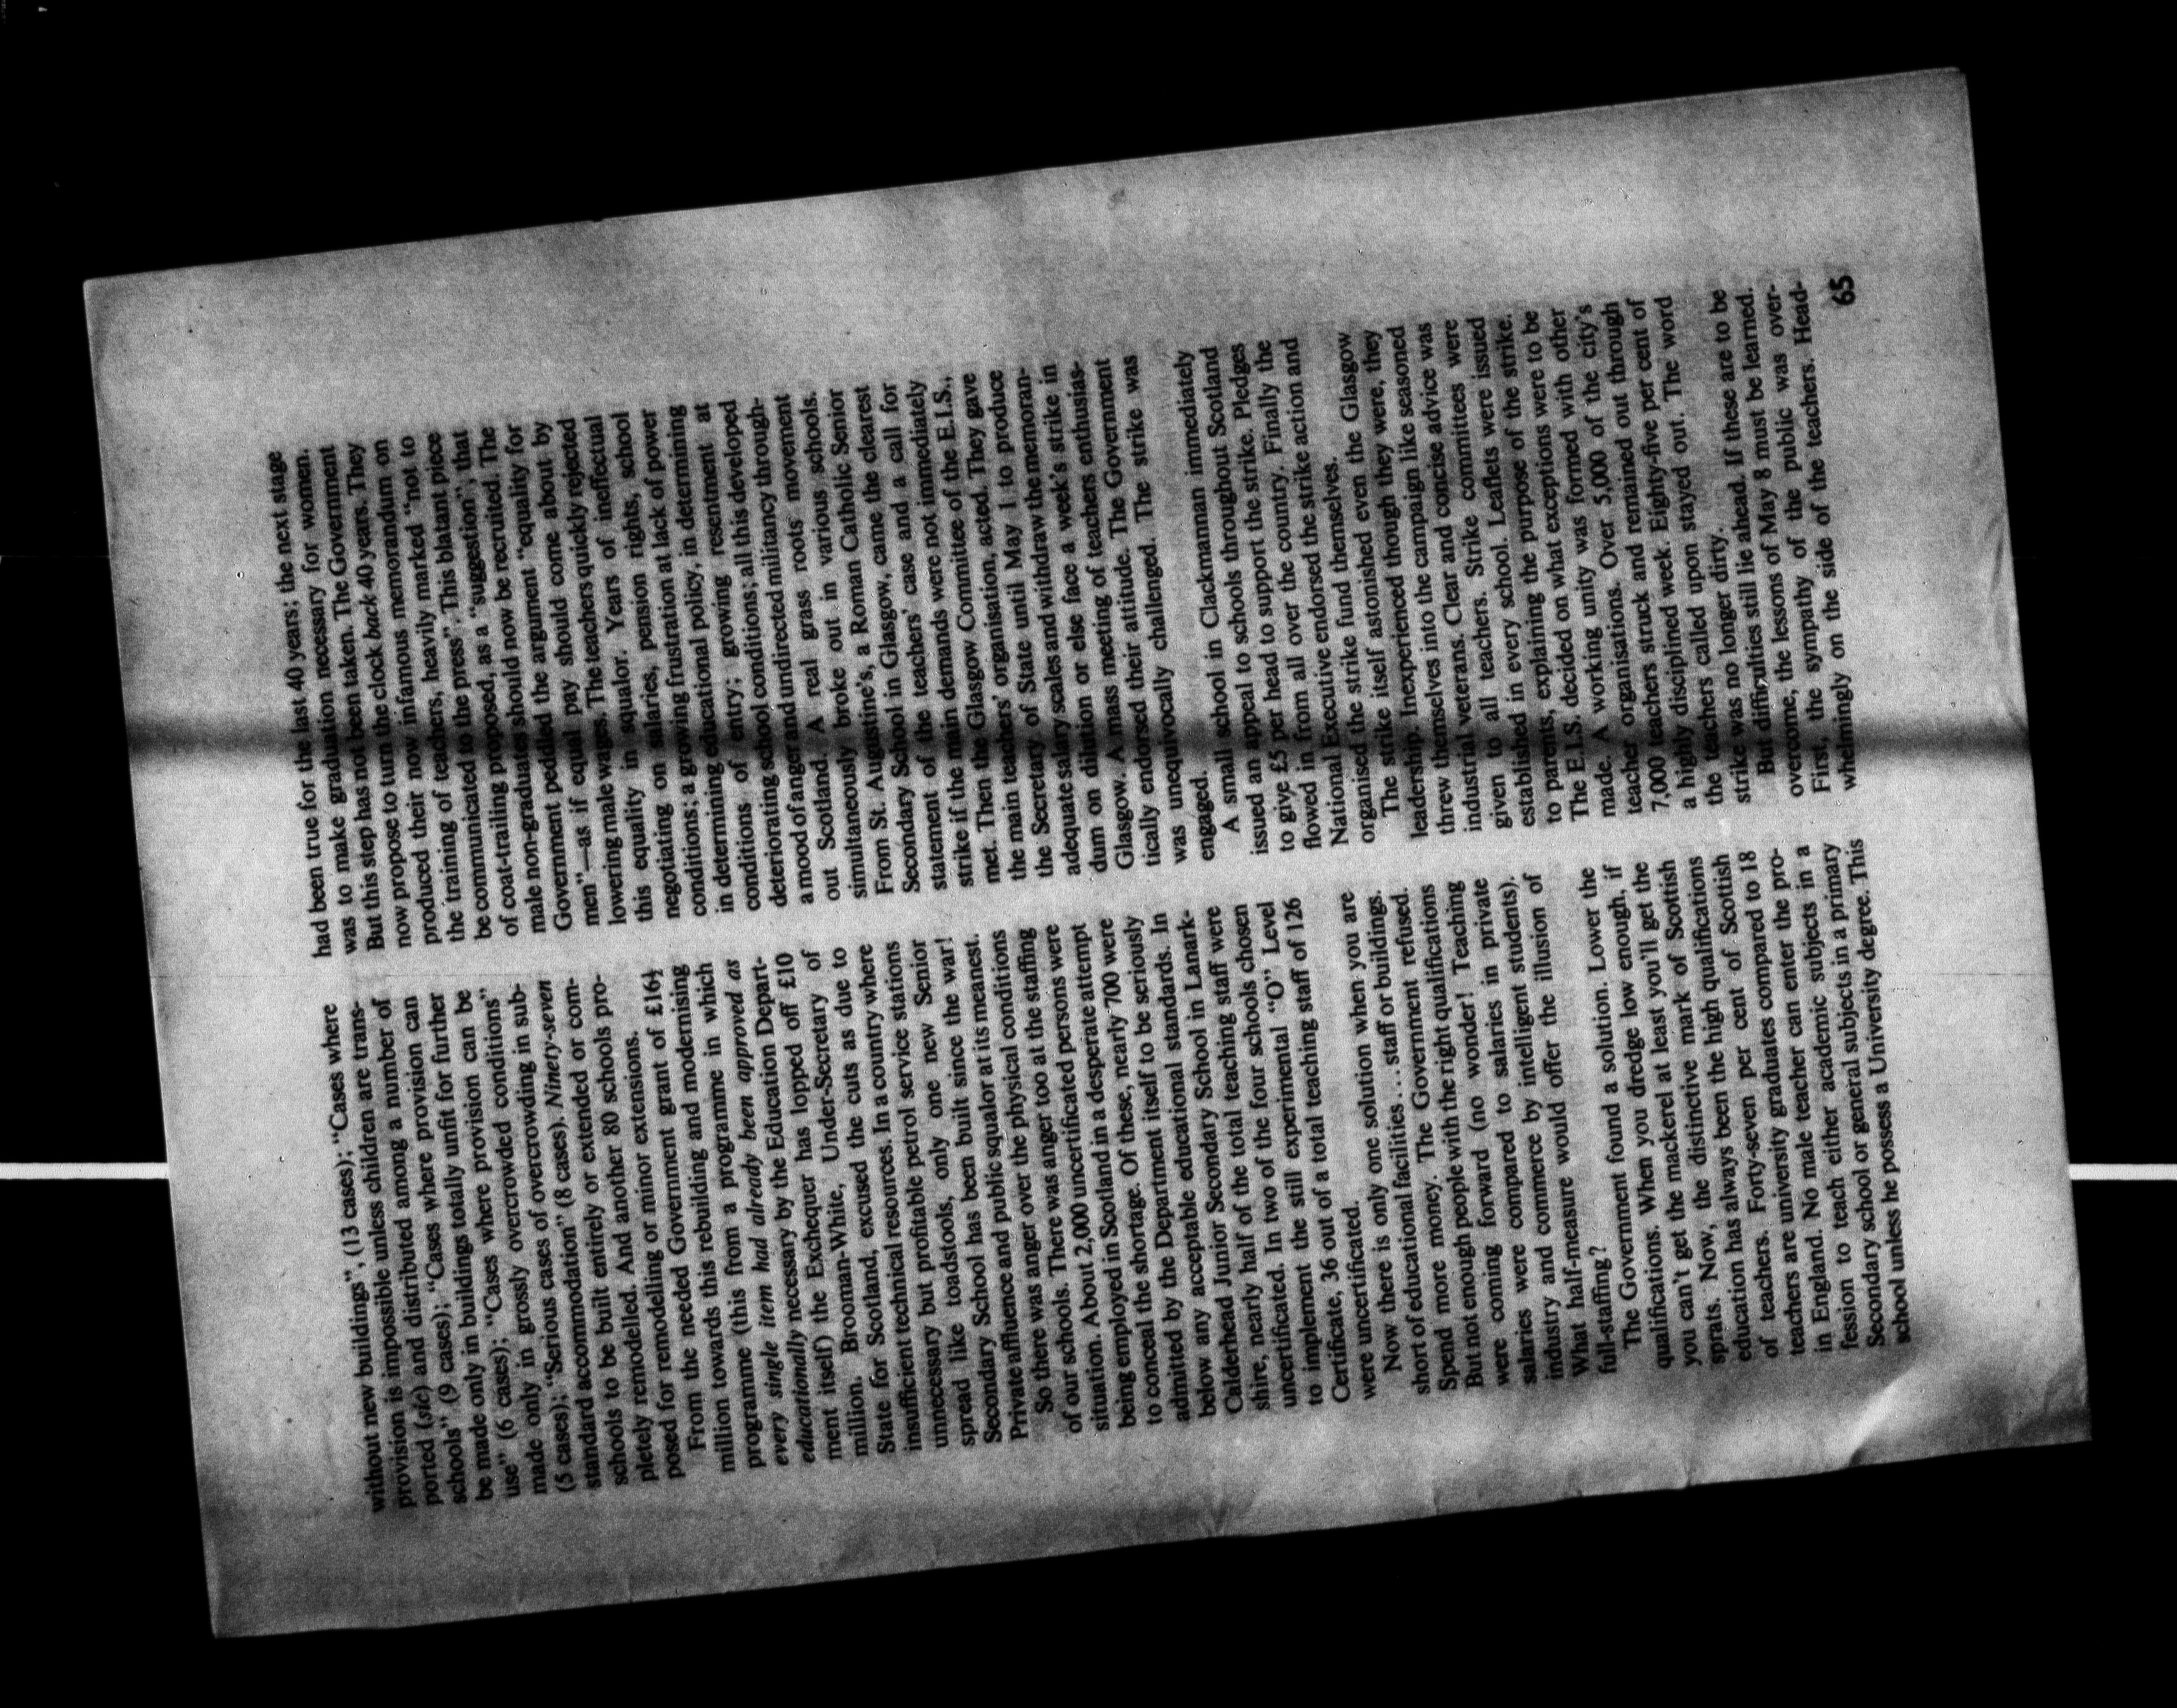 without new buildings", (13 cases); "Cases where
provision is impossible unless children are trans-
ported (sic) and distributed among a number of
schools" (9 cases); "Cases where provision can
be made only in buildings totally unfit for further
use" (6 cases); "Cases where provision can be
made only in grossly overcrowded conditions"
(5 cases); "Serious cases of overcrowding in sub-
standard accommodation" (8 cases). Ninety-seven
schools to be built entirely or extended or com-
pletely remodelled. And another 80 schools pro-
posed for remodelling or minor extensions.
From the needed Government grant of £16½
million towards this rebuilding and modernising
programme (this from a programme in which
every single item had already been approved as
educationally necessary by the Education Depart-
ment itself) the Exchequer has lopped off £10
million. Brooman-White, Under-Secretary of
State for Scotland, excused the cuts as due to
insufficient technical resources. In a country where
unnecessary but profitable petrol service stations
spread like toadstools, only one new Senior
Secondary School has been built since the war!
Private affluence and public squalor at its meanest.
So there was anger over the physical conditions
of our schools. There was anger too at the staffing
situation. About 2,000 uncertificated persons were
being employed in Scotland in a desperate attempt
to conceal the shortage. Of these, nearly 700 were
admitted by the Department itself to be seriously
below any acceptable educational standards. In
Calderhead Junior Secondary School in Lanark-
shire, nearly half of the total teaching staff were
uncertificated. In two of the four schools chosen
to implement the still experimental "O" Level
Certificate, 36 out of a total teaching staff of 126
were uncertificated.
Now there is only one solution when you are
short of educational facilities . . . staff or buildings.
Spend more money. The Government refused.
But not enough people with the right qualifications
were coming forward (no wonder! Teaching
salaries were compared to salaries in private
industry and commerce by intelligent students).
What half-measure would offer the illusion of
full-staffing?
The Government found a solution. Lower the
qualifications. When you dredge low enough, if
you can't get the mackerel at least you'll get the
sprats. Now, the distinctive mark of Scottish
education has always been the high qualifications
of teachers. Forty-seven per cent of Scottish
teachers are university graduates compared to 18
in England. No male teacher can enter the pro-
fession to teach either academic subjects in a
Secondary school or general subjects in a primary
school unless he possess a University degree. This
had been true for the last 40 years; the next stage
was to make graduation necessary for women.
But this step has not been taken. The Government
now propose to turn the clock back 40 years. They
produced their now infamous memorandum on
the training of teachers, heavily marked "not to
be communicated to the press". This blatant piece
of coat-trailing proposed, as a "suggestion", that
male non-graduates should now be recruited. The
Government peddled the argument "equality for
men"—as if equal pay should come about by
lowering male wages. The teachers quickly rejected
this equality in squalor. Years of ineffectual
negotiating on salaries, pension rights, school
conditions; a growing frustration at lack of power
in determining educational policy, in determining
conditions of entry; growing resentment at
deteriorating school conditions; all this developed
a mood of anger and undirected militancy through-
out Scotland. A real grass roots movement
simultaneously broke out in various schools.
From St. Augustine's, a Roman Catholic Senior
Secondary School in Glasgow, came the clearest
statement of the teachers' case and a call for
strike if the main demands were not immediately
met. Then the Glasgow Committee of the E.I.S.,
the main teachers' organisation, acted. They gave
the Secretary of State until May 1 to produce
adequate salary scales and withdraw the memoran-
dum on dilution or else face a week's strike in
Glasgow. A mass meeting of teachers enthusias-
tically endorsed their attitude. The Government
was unequivocally challenged. The strike was
engaged.
A small school in Clackmannan immediately
issued an appeal to schools throughout Scotland
to give £5 per head to support the strike. Pledges
flowed in from all over the country. Finally the
National Executive endorsed the strike action and
organised the strike fund themselves.
The strike itself astonished even the Glasgow
leadership. Inexperienced though they were, they
threw themselves into the campaign like seasoned
industrial veterans. Clear and concise advice was
given to all teachers. Strike committees were
established in every school. Leaflets were issued
to parents, explaining the purpose of the strike.
The E.I.S. decided on what exceptions were to be
made. A working unity was formed with other
teacher organisations. Over 5,000 of the city's
7,000 teachers struck and remained out through
a highly disciplined week. Eighty-five per cent of
the teachers called upon stayed out. The word
strike was no longer dirty.
But difficulties still lie ahead. If these are to be
overcome, the lessons of May 8 must be learned.
First, the sympathy of the public was over-
whelmingly on the side of the teachers. Head-
65